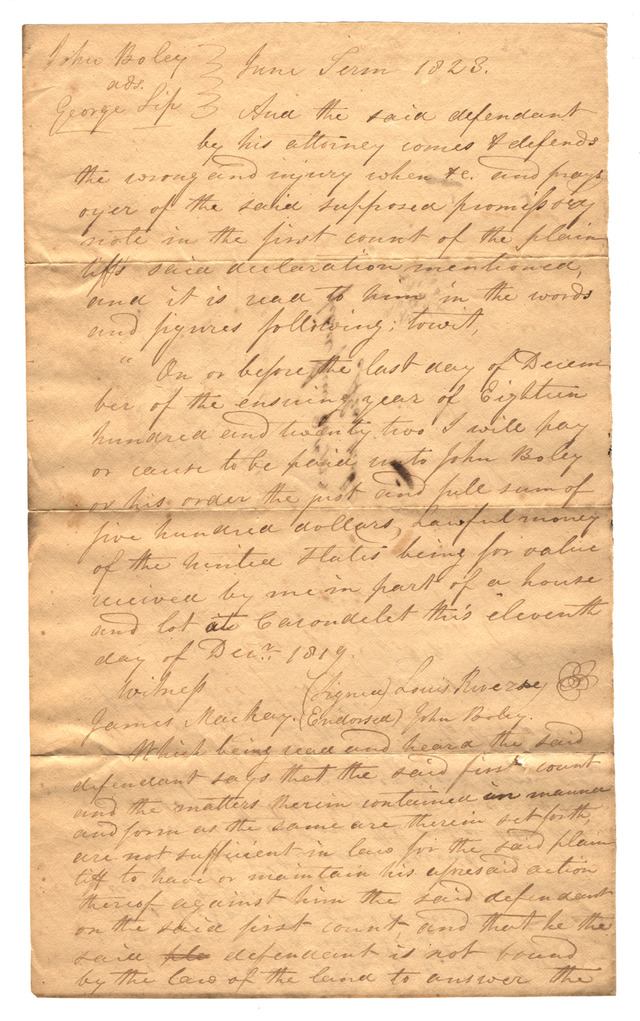 John Boley
ads.
George Sip
June Term 1823.
And the said defendant
by his attorney comes & defends
the wrong and injury when &c. and prays
oyer of the said supposed promissory
note in the first count of the plain
tiff's said declaration mentioned,
and it is read to him in the words
and figures following; towit,
" On or before the last day of Decem
ber of the ensuing year of Eighteen
hundred and twenty two I will pay
or cause to be paid unto John Boley
or his order the just and full sum of
five hundred dollars, Lawful money
of the United States being for value
received by me in part of a house
and lot at Carondelet this eleventh
day of Decr. 1819.
Witness (Signed) Louis
James Mackay. (Endorsed) John Boley.
Which being read and heard the said
defendant says that the said first count
and the matters therein contained in manner
and form as the same are therein set forth,
are not sufficient in law for the said plain
tiff to have or maintain his aforesaid action
thereof against him the said defendant
on the said first count and that he the
said defendant is not bound
by the law of the land to answer the